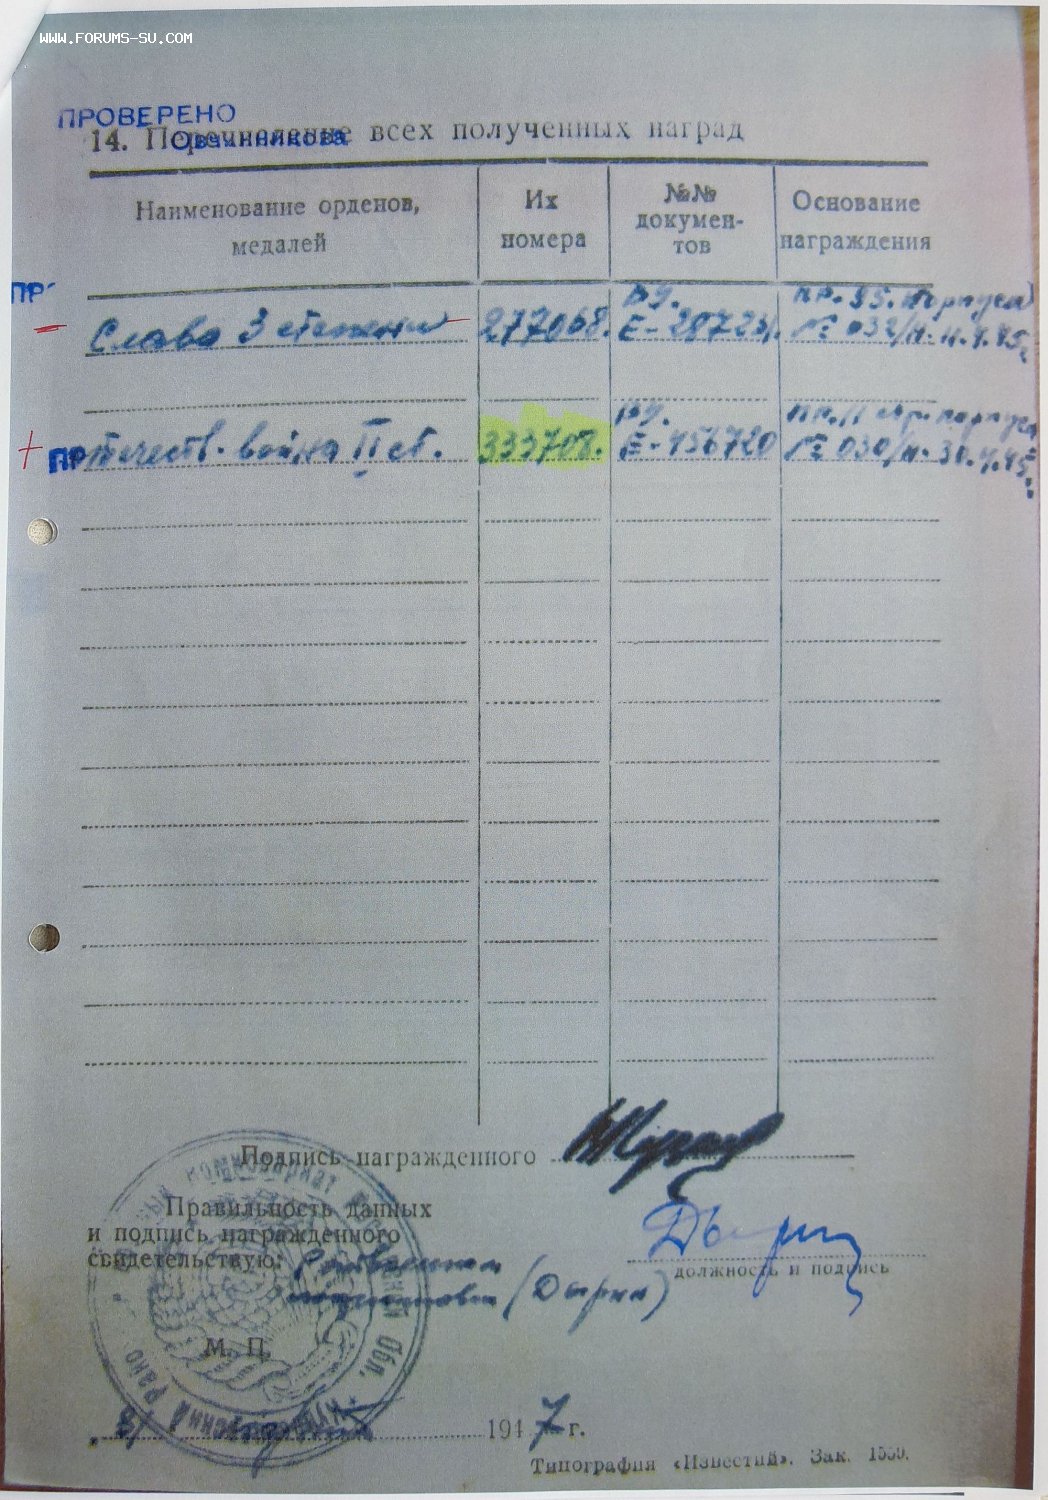 WWW.FORUMS-SU.COM
ПРОВЕРЕНО
Овчинникова
14. Перечисление всех полученных наград
Наименование орденов, медалей
Их номера
№№ докумен-тов
Основание награждения
ПР
Слава 3 степени
277068.
ву.
Е-287231.
пр. 95. корпуса
№ 032/н.
ПР
отечеств. война II ст.
333708.
ву.
Е-456720
пр. 11
корпуса
№ 030/н.
Подпись награжденного
Правильность данных
и подпись награжденного
свидетельствую:
(Дырин)
должность и подпись
М. П.
1947 г.
Типография «Известий». Зак. 1559.